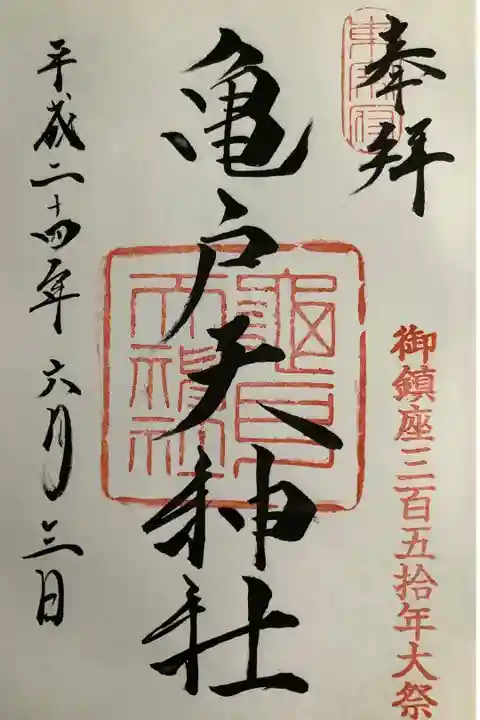 奉拝
御鎮座三百五拾年大祭
亀戸天神社
平成二十四年六月三日